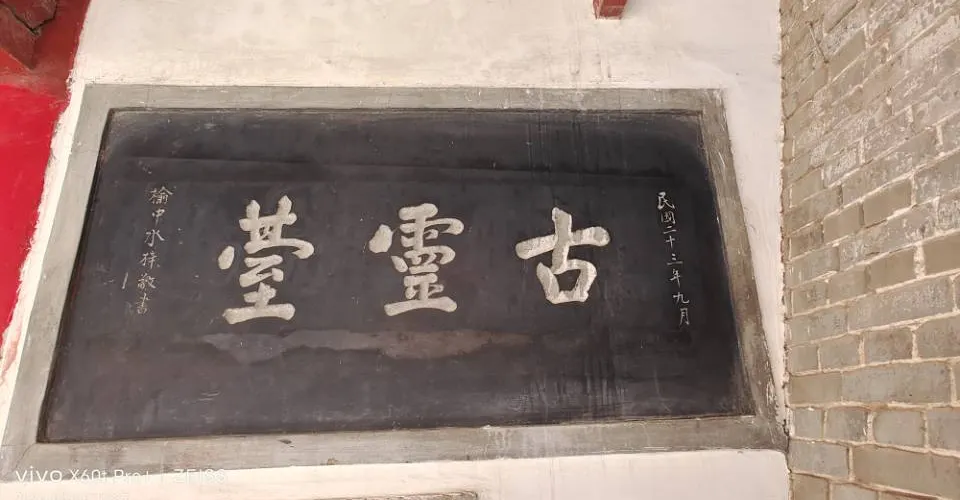 民國二十三年九月
古靈臺
榆中水梓敬書
vivo X60t Pro+ | ZEISS